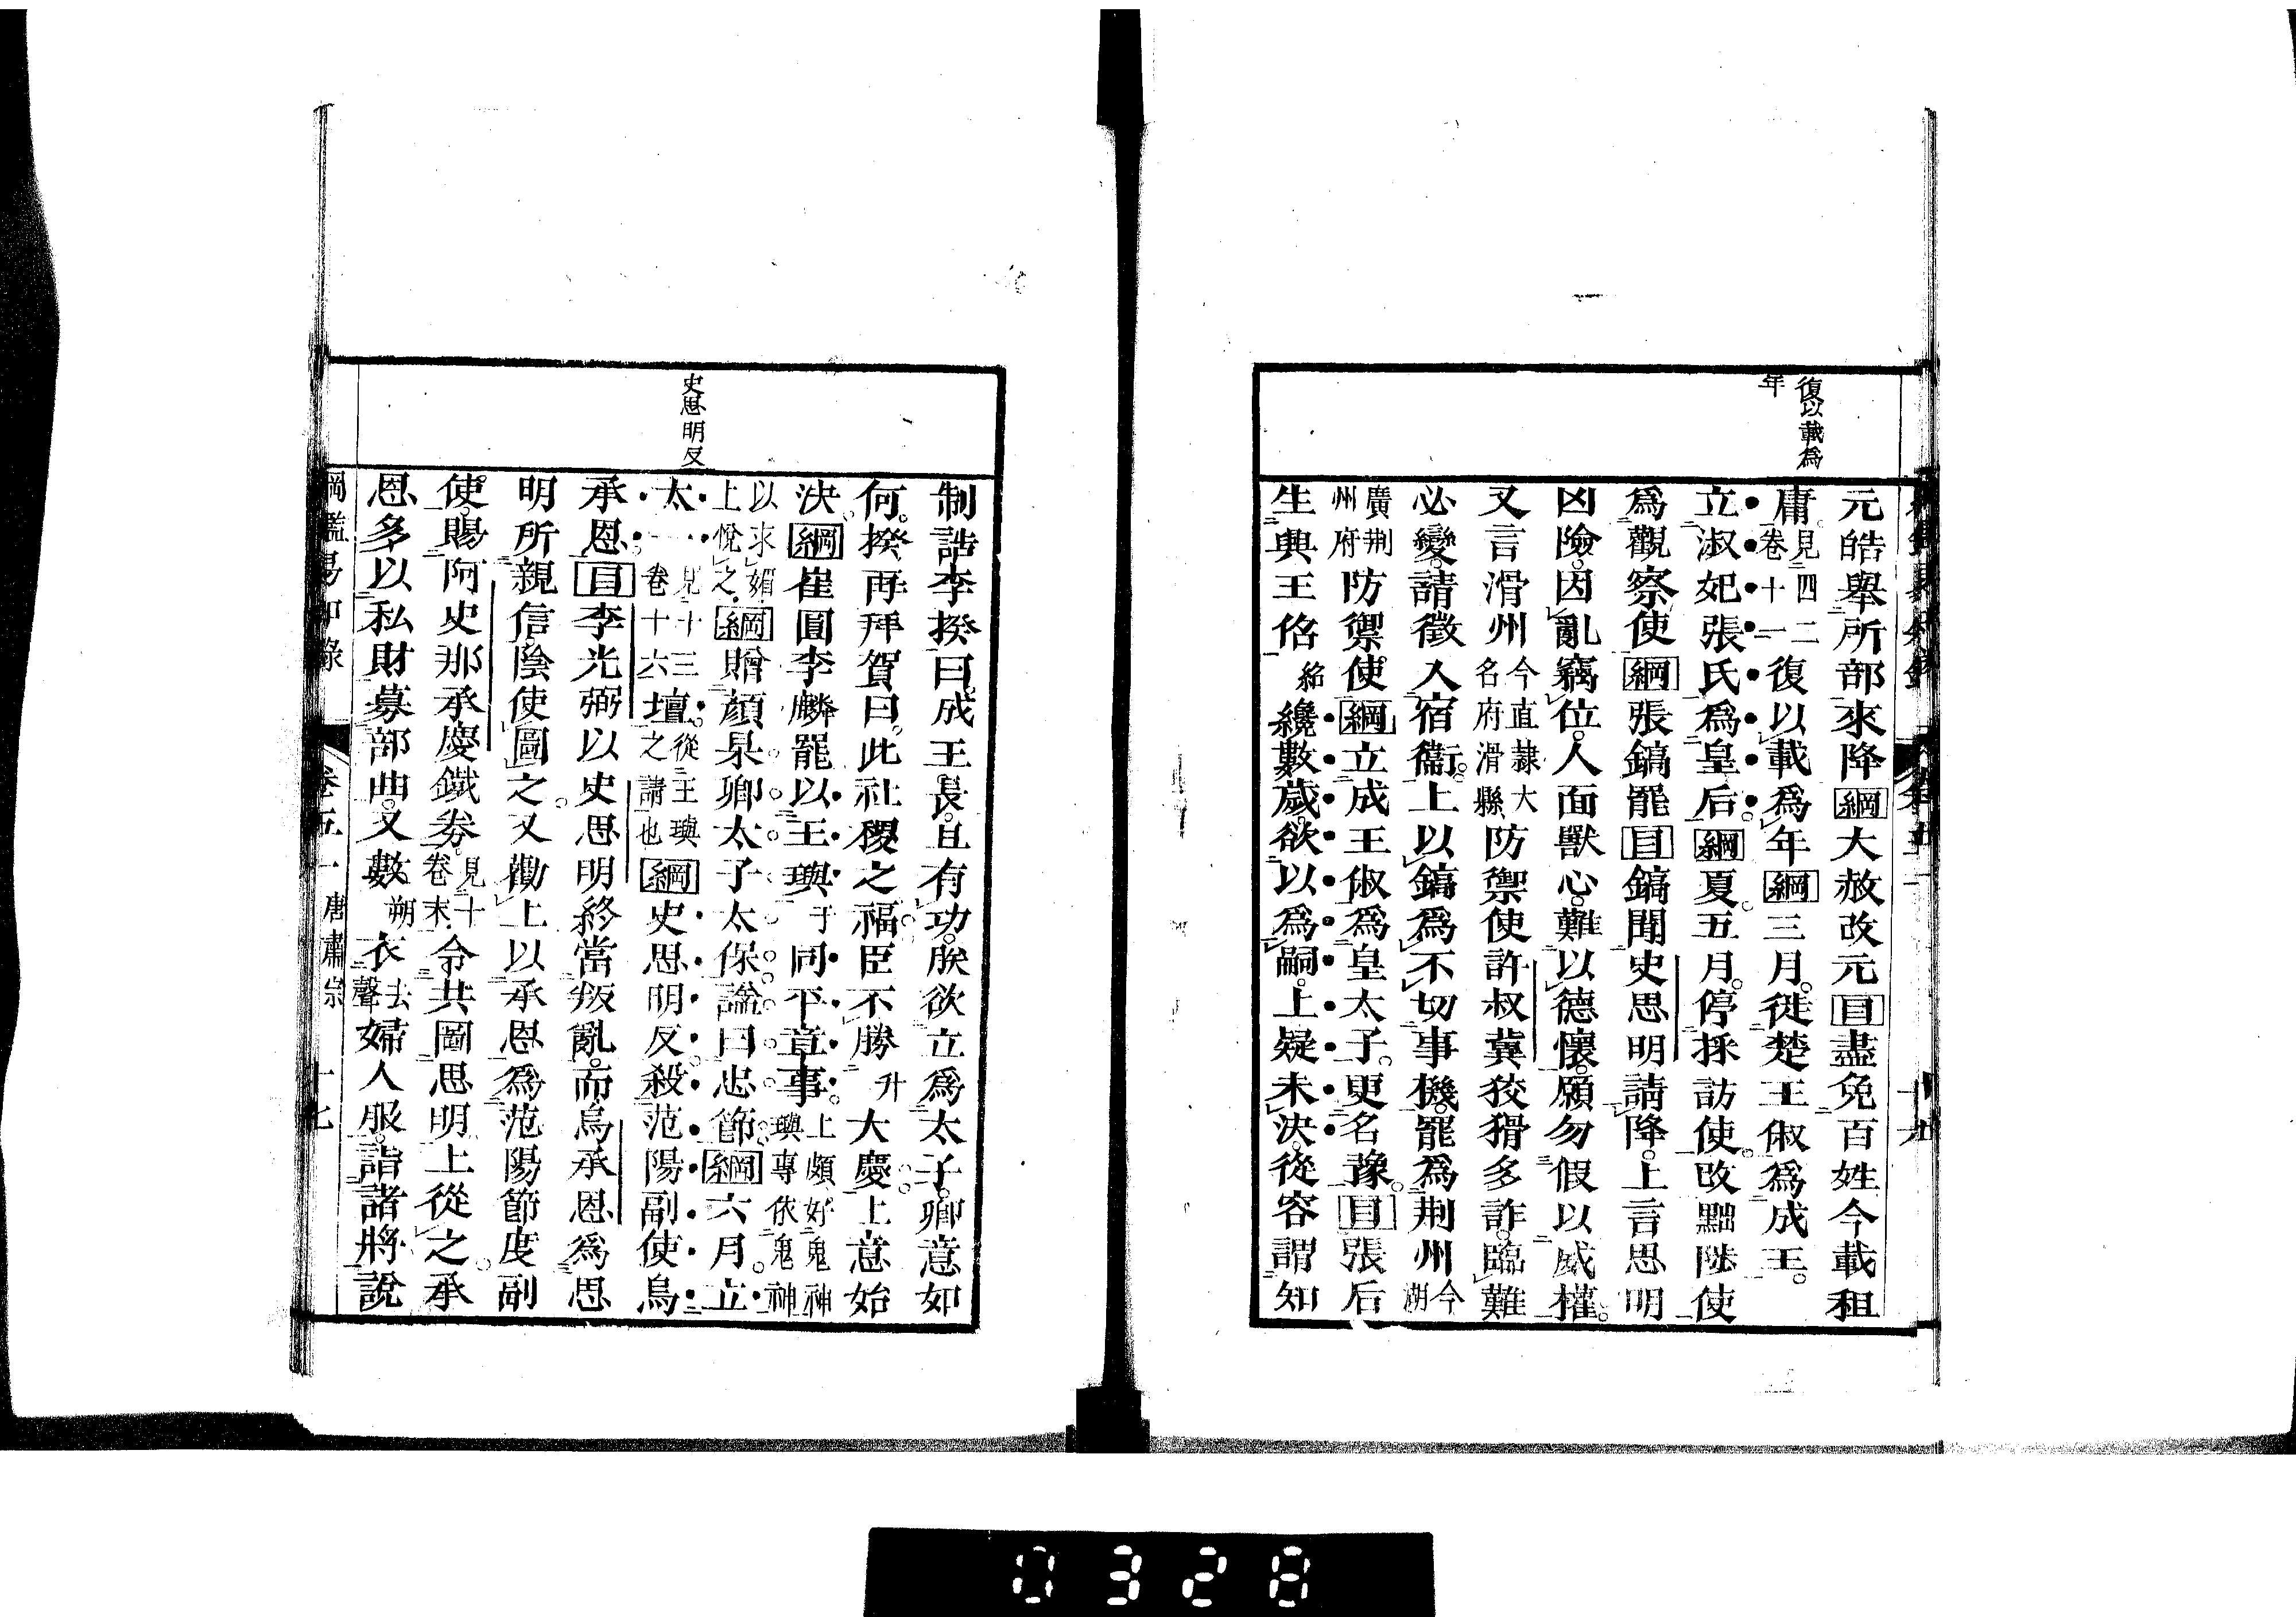 復以載為
年
元皓舉所部來降綱大赦改元目盡免百姓今載租
庸見四二卷十一復以載爲年綱三月徙楚王俶爲成王
立淑妃張氏爲皇后綱夏五月停採訪使改黜陟使
爲觀察使綱張鎬罷目鎬聞史思明請降上言思明
凶險因亂竊位人面獸心難以德懷願勿假以威權
又言滑州今直隸大名府滑縣防禦使許叔冀狡猾多詐臨難
必變請徵入宿衞上以鎬爲不切事機罷爲荆州今湖
廣荆州府防禦使綱立成王俶爲皇太子更名豫目張后
生興王佋紹纔數歲欲以爲嗣上疑未決從容謂知
史思明反
制誥李揆曰成王長且有功朕欲立爲太子卿意如
何揆再拜賀曰此社稷之福臣不勝升大慶上意始
決綱崔圓李麟罷以王璵于同平章事上頗好鬼神璵專依鬼神
以求媚上悅之綱贈顏杲卿太子太保謚曰忠節綱六月立
太一見十三卷十六壇從王璵之請也綱史思明反殺范陽副使烏
承恩目李光弼以史思明終當叛亂而烏承恩爲思
明所親信陰使圖之又勸上以承恩爲范陽節度副
使賜阿史那承慶鐵券見十卷末令共圖思明上從之承
恩多以私財募部曲又數朔衣去聲婦人服詣諸將說
綱鑑易知錄 卷五一 唐肅宗 十七
0328